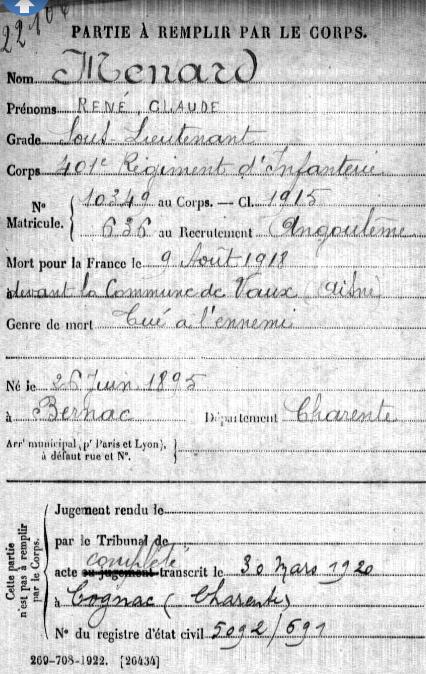 PARTIE À REMPLIR PAR LE CORPS.
Nom Ménard
Prénoms RENÉ, CLAUDE
Grade Sous-Lieutenant
Corps 401e Régiment d'Infanterie
N° Matricule. { 10349 au Corps. — Cl. 1915
636 au Recrutement Angoulême
Mort pour la France le 9 Août 1918
à devant la Commune de Vaux (Aisne)
Genre de mort Tué a l'ennemi
Né le 26 Juin 1895
à Bernac Département Charente
Arrt municipal (pr Paris et Lyon), à défaut rue et N°. }
Cette partie n'est pas à remplir par le Corps.
Jugement rendu le
par le Tribunal de
complété
acte ou jugement transcrit le 30 Mars 1920
à Cognac (Charente)
N° du registre d'état civil 5092/691
269-708-1922. [26434]